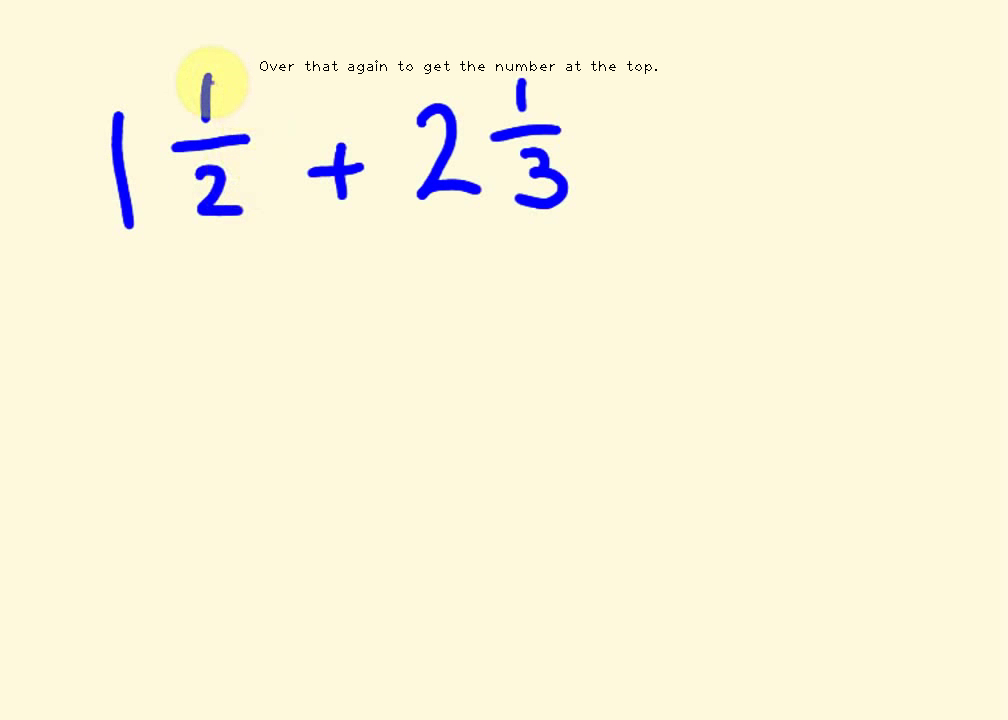 Over that again to get the number at the top.
1 1/2 + 2 1/3